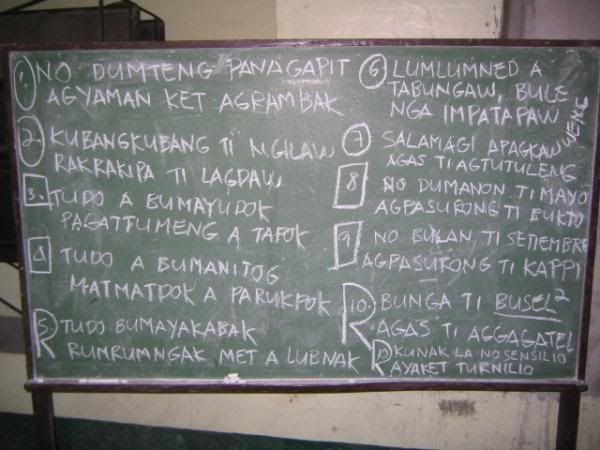 1. NO DUMTENG PANAGAPIT
AGYAMAN KET AGRAMBAK
2. KUBANGKUBANG TI NGILAW
RAKRAKIPA TI LAGDAW
3. TUDO A BUMAYUDOK
PAGATTUMENG A TAPOK
4 TUDO A BUMANITOG
MATMATDOK A PARUKPOK
R 5. TUDO BUMAYAKABAK
RUMRUMNGAK MET A LUBNAK
6 LUMLUMNED A
TABUNGAW, BULE
NGA IMPATAPAW
7 SALAMAGI APAGKAW WENG
AGAS TI AGTUTULENG
8 NO DUMANON TI MAYO
AGPASURONG TI BUKTO
9 NO BULAN TI SETIEMBRE
AGPASURONG TI KAPPI
R 10. BUNGA TI BUSEL 2
AGAS TI AGGAGATEL
R KUNAK LA NO SENSILIO
AYAKET TURNILIO